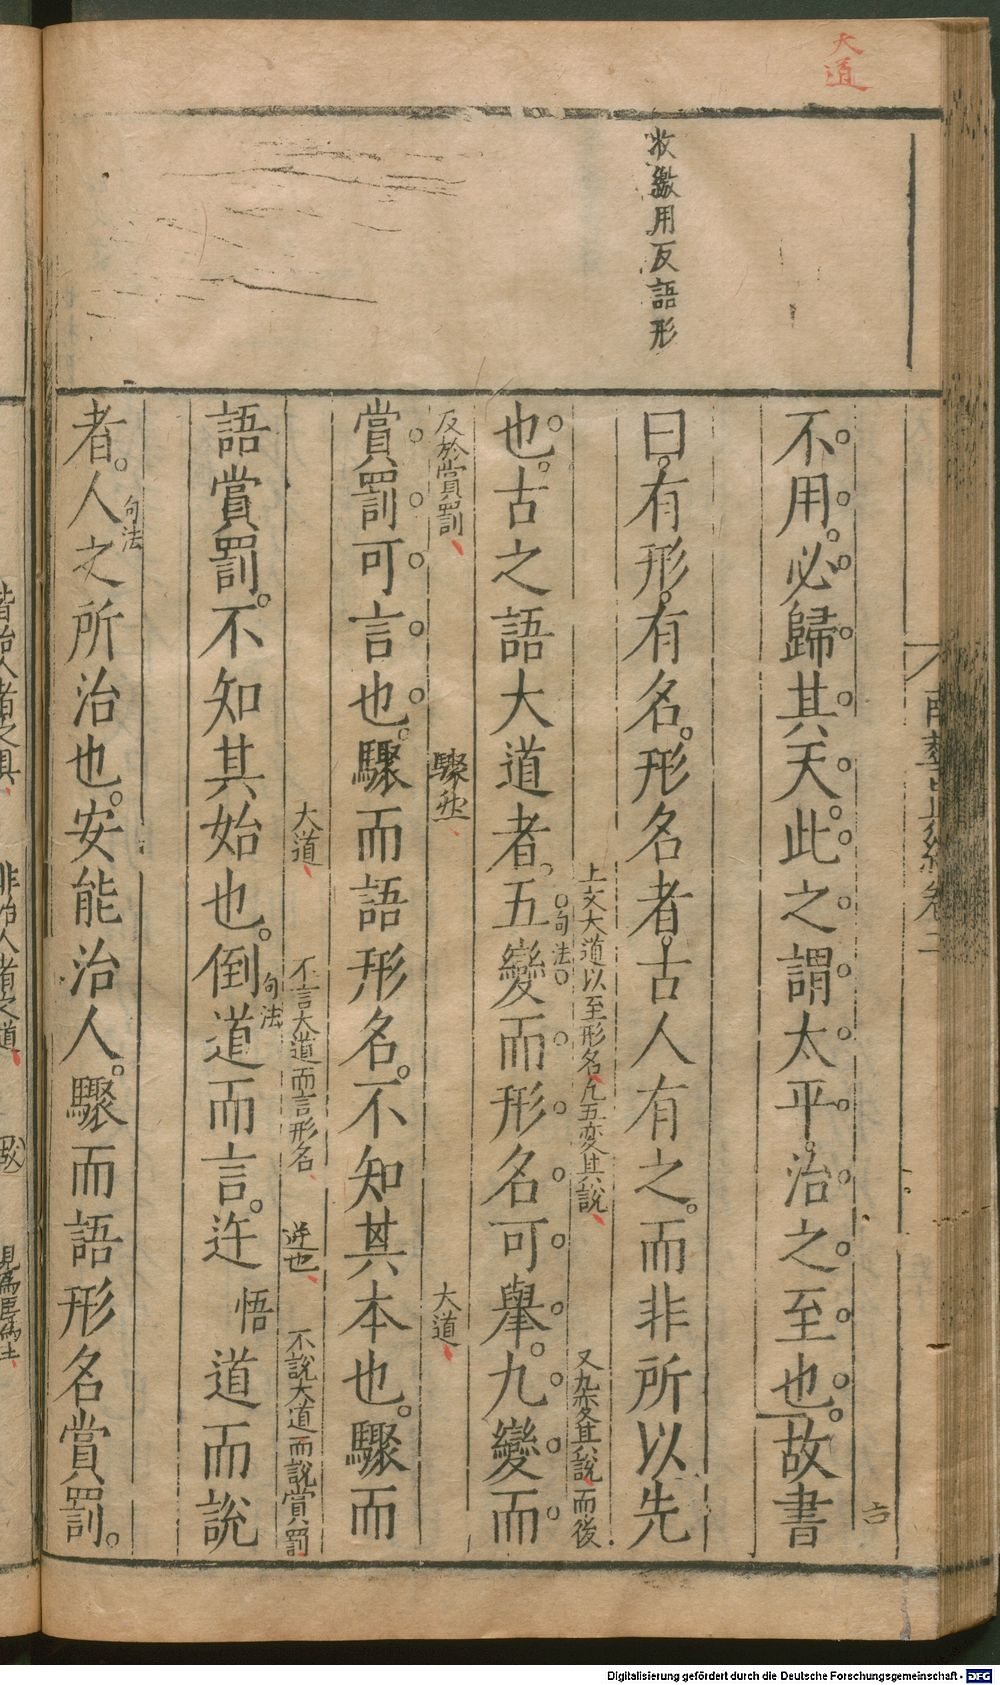 大道
收繳用反語形
不用。必歸其天。此之謂太平。治之至也。故書
曰。有形有名。形名者。古人有之。而非所以先
上文大道以至形名凡五変其説
又九変其説而後
也。古之語大道者。五變而形名可舉。九變而
句法
反於賞罰
驟然
大道
賞罰可言也。驟而語形名。不知其本也。驟而
大道
不言大道而言形名
逆也
不説大道而説賞罰
語賞罰。不知其始也。倒道而言。迕悟道而說
句法
者。人之所治也。安能治人。驟而語形名賞罰。
句法
Digitalisierung gefördert durch die Deutsche Forschungsgemeinschaft - DFG